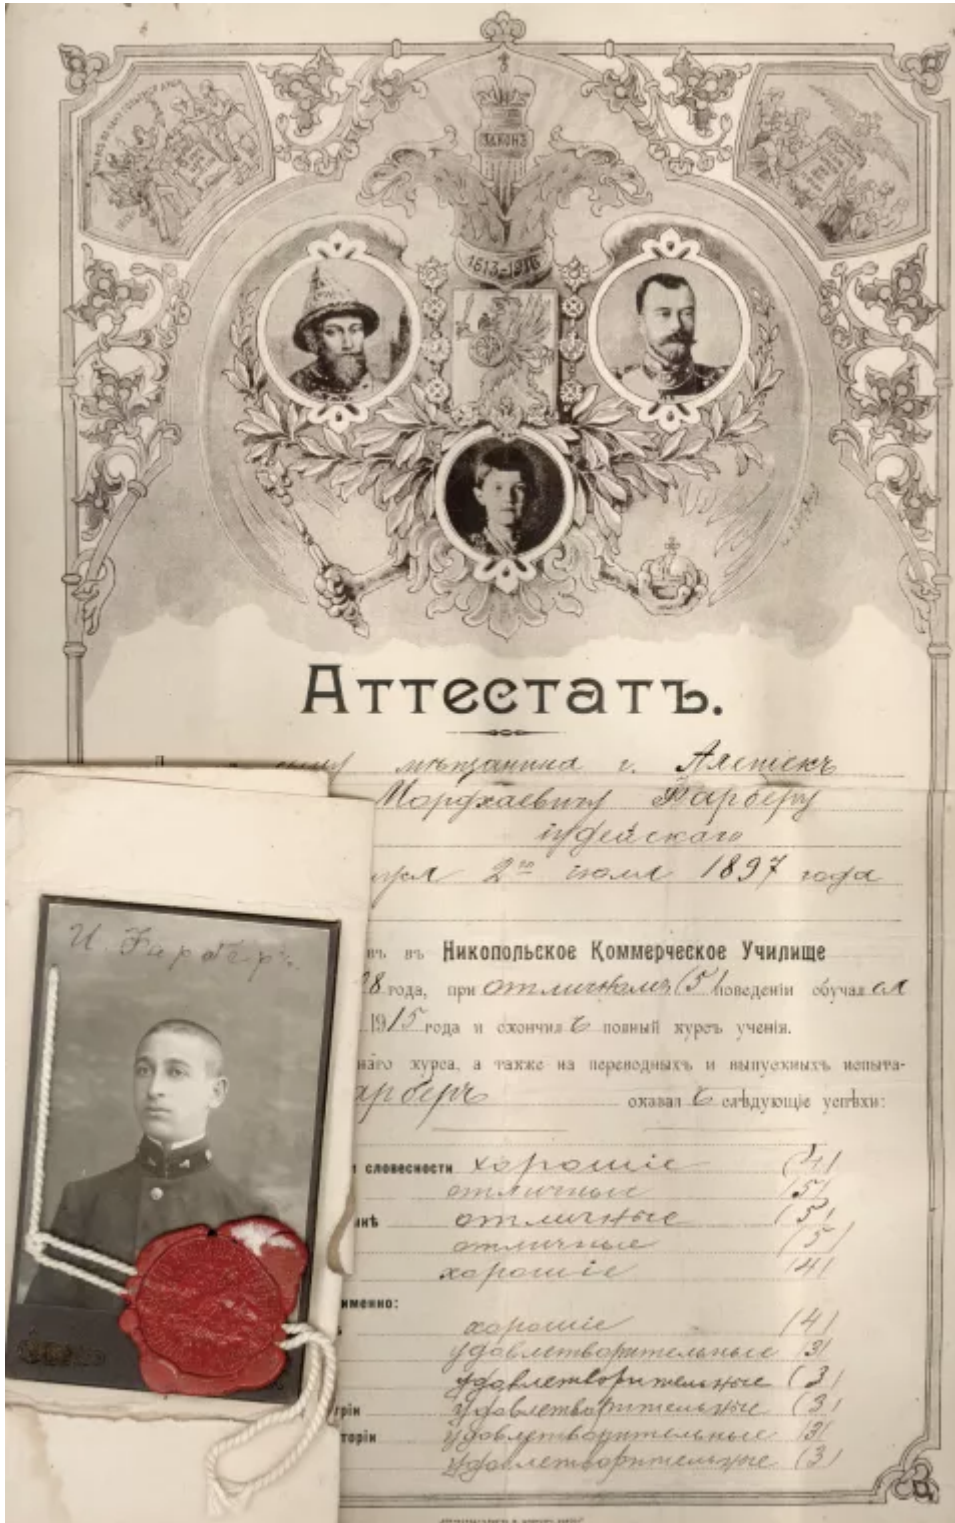 ЗАКОНЪ
1613-1913
Аттестатъ.
сыну мѣщанина г. Алешекъ
Мордхаевичу Фарберу
іудейскаго
2го іюля 1897 года
въ Никопольское Коммерческое Училище
И. Фарберъ.
8 года, при отличномъ (5) поведеніи обучался
1915 года и окончилъ полный курсъ ученія.
наго курса, а также на переводныхъ и выпускныхъ испыта-
арберъ оказалъ слѣдующіе успѣхи:
словесности хорошіе (4)
отличные (5)
отличные (5)
отличные (5)
хорошіе (4)
именно:
хорошіе (4)
удовлетворительные (3)
удовлетворительные (3)
удовлетворительные (3)
торіи удовлетворительные (3)
удовлетворительные (3)